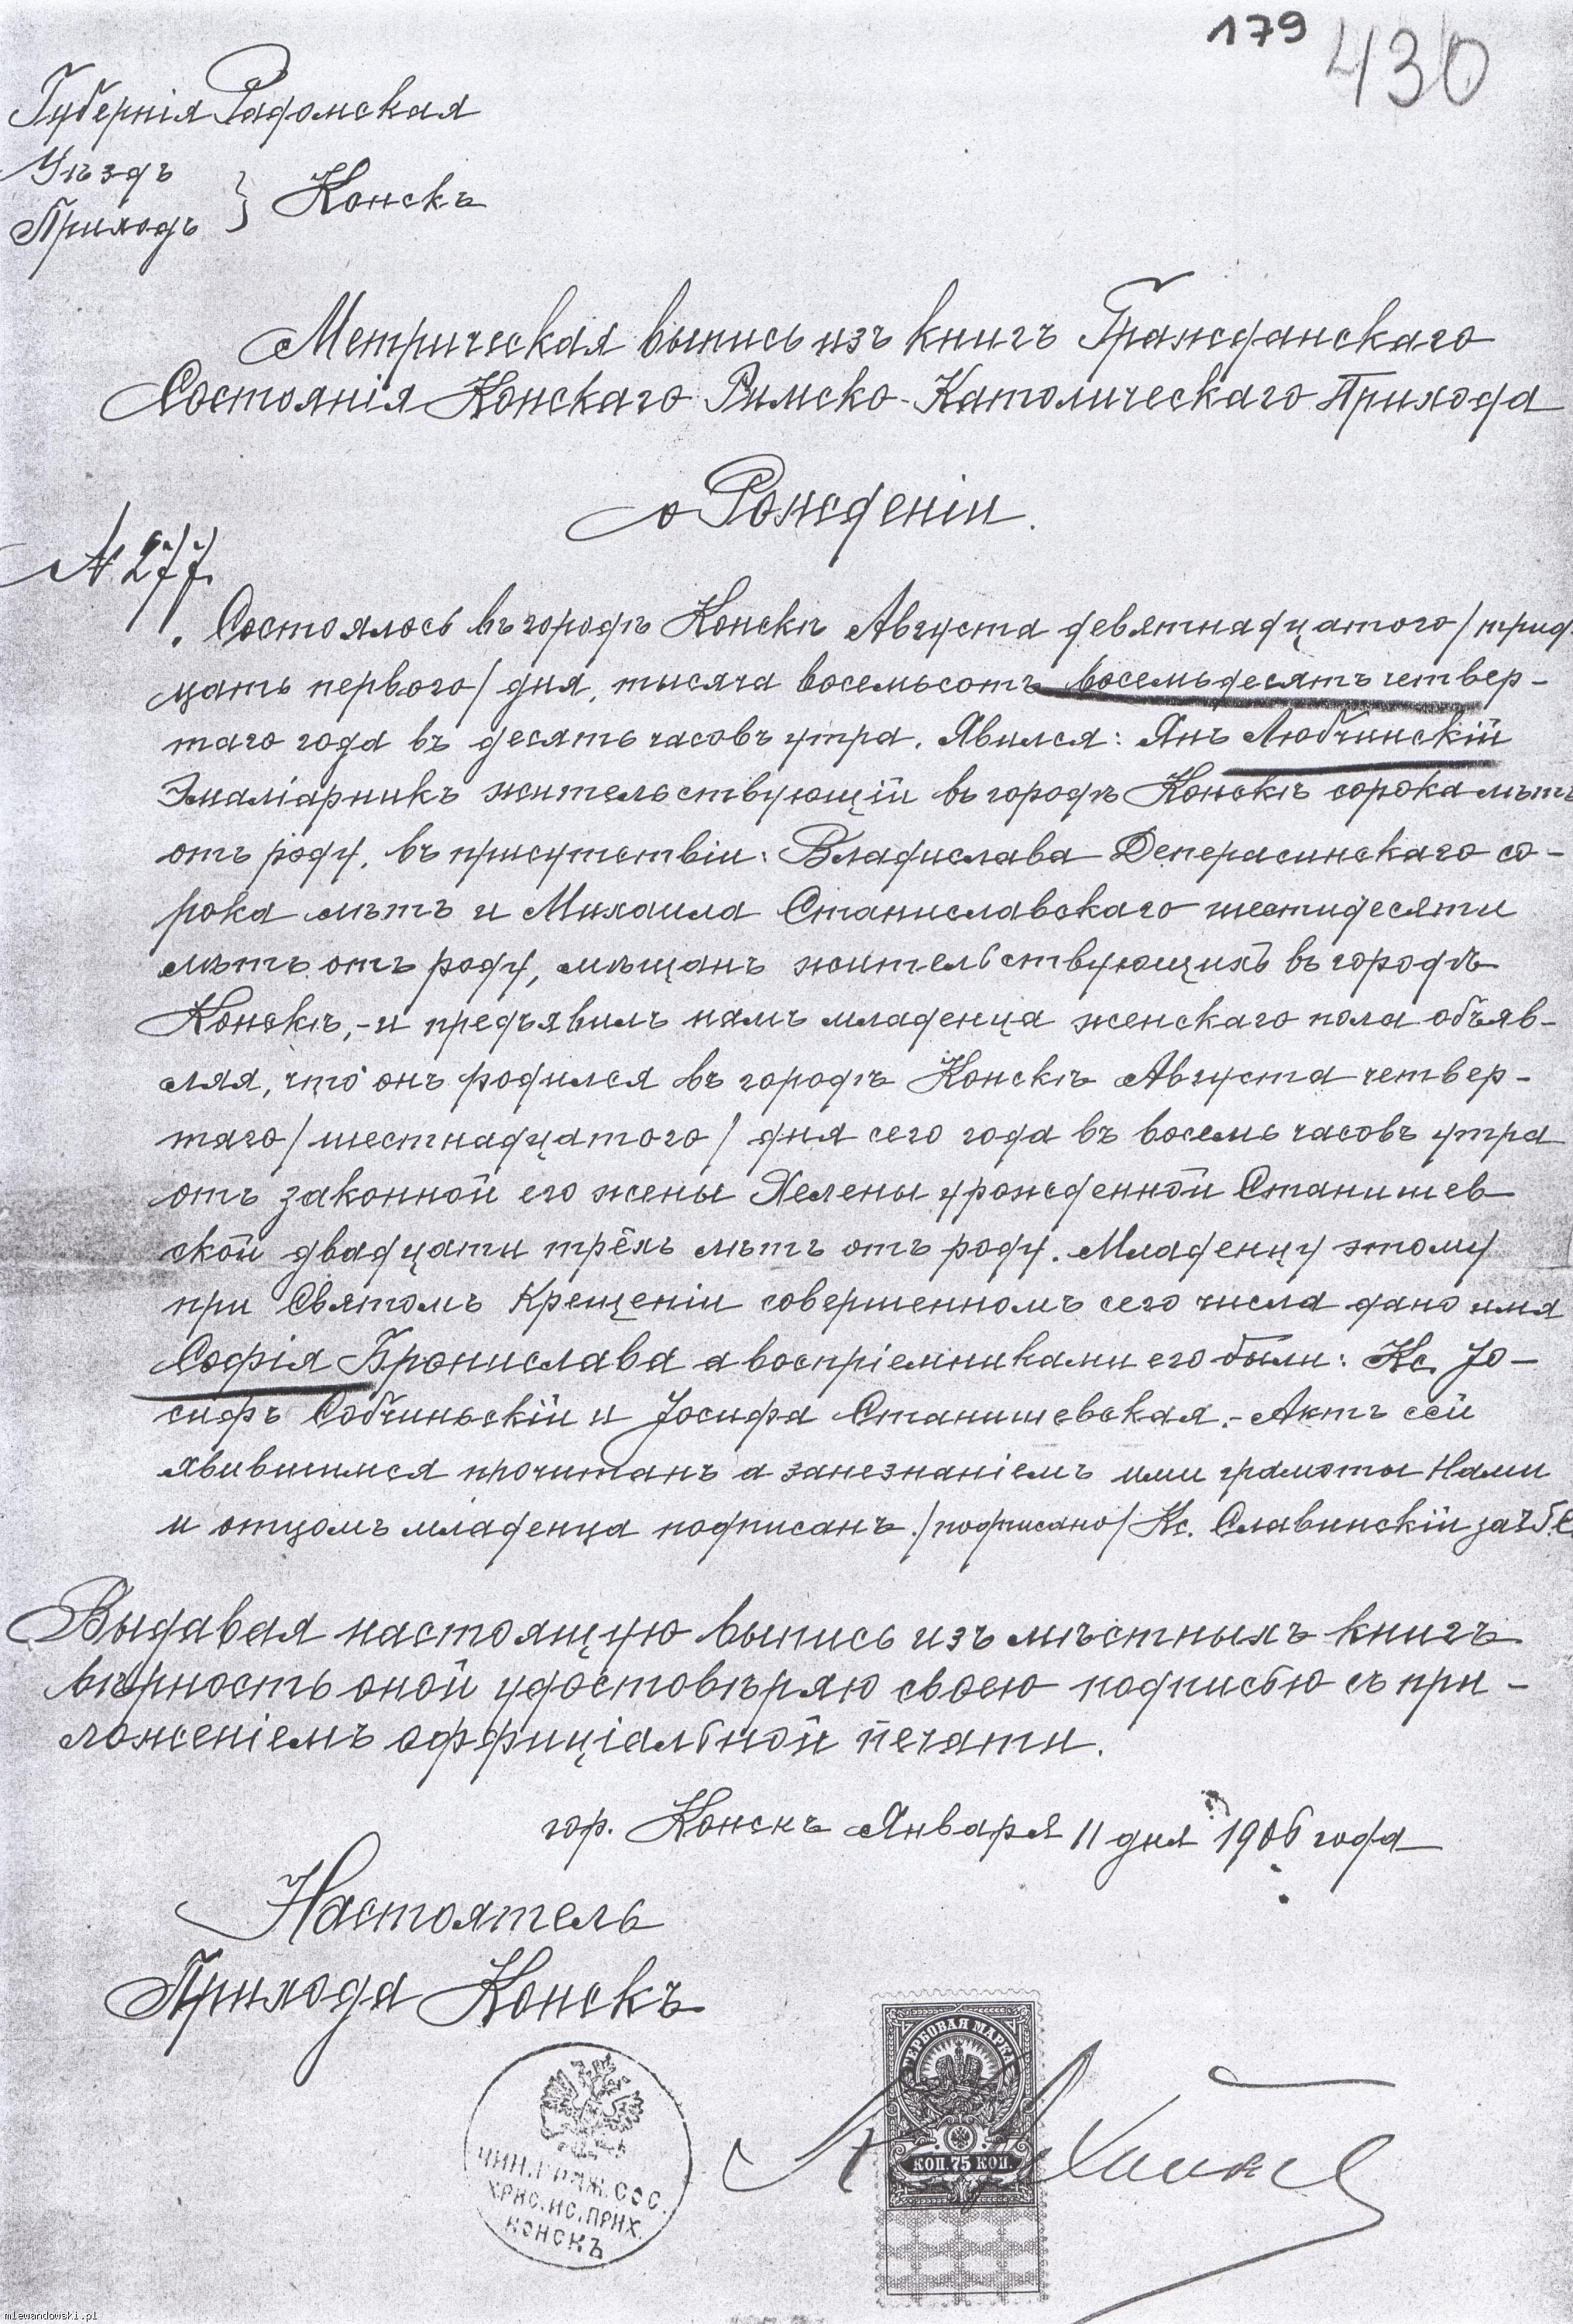 179 430
Губернія Радомская
Уѣздъ
Приходъ } Конскъ
Метрическая выпись изъ книгъ Гражданскаго
Состоянія Конскаго Римско-Католическаго Прихода
о Рожденіи.
N 277.
Состоялось въ городѣ Конскѣ Августа девятнадцатого/трид-
цать первого/ дня, тысяча восемьсотъ восемьдесятъ четвер-
таго года въ десять часовъ утра. Явился: Янъ Любчинскій
Эмаліарникъ жительствующій въ городѣ Конскѣ сорока лѣтъ
отъ роду, въ присутствіи: Владислава Деперасинскаго со-
рока лѣтъ и Михаила Станиславскаго шестидесяти
лѣтъ отъ роду, мѣщанъ жительствующихъ въ городѣ
Конскѣ,- и предъявилъ намъ младенца женскаго пола объяв-
ляя, что онъ родился въ городѣ Конскѣ Августа четвер-
таго/шестнадцатого/ дня сего года въ восемь часовъ утра
отъ законной его жены Хелены урожденной Станишев-
ской двадцати трёхъ лѣтъ отъ роду. Младенцу этому
при Святомъ Крещеніи совершенномъ сего числа дано имя
Софія Бронислава а воспріемниками его были: Кс. Іо-
сифъ Собчиньскій и Іосифа Станишевская.- Актъ сей
явившимся прочитанъ а занезнаніемъ ими грамоты Нами
и отцомъ младенца подписанъ./подписано/ Кс. Славинскій
Выдавая настоящую выпись изъ мѣстныхъ книгъ
вѣрность оной удостовѣряю своею подписью съ при-
ложеніемъ оффиціальной печати.
гор. Конскъ Января 11 дня 1906 года
Настоятель
Прихода Конскъ
ГЕРБОВАЯ МАРКА
КОП. 75 КОП.
ЧИН.ГРАЖ.СОС.
ХРИС.ИС.ПРИХ.
КОНСКЪ
mlewandowski.pl